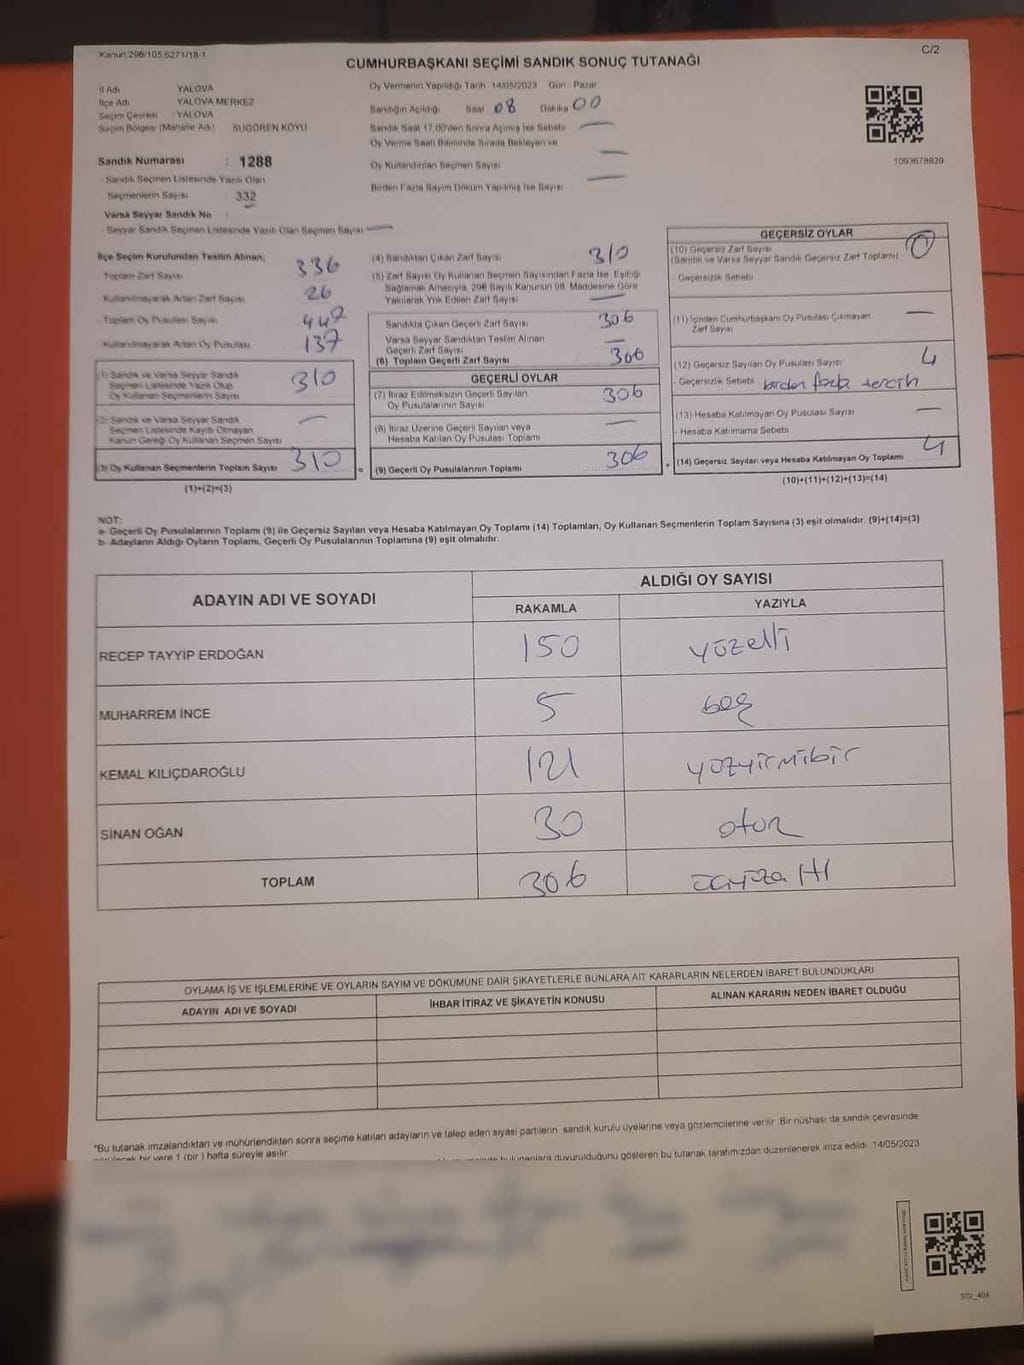 Kanun:298/105,6271/18-1
C/2
CUMHURBAŞKANI SEÇİMİ SANDIK SONUÇ TUTANAĞI
İl Adı YALOVA
İlçe Adı YALOVA MERKEZ
Seçim Çevresi : YALOVA
Seçim Bölgesi (Mahalle Adı) SUGÖREN KÖYÜ
Oy Vermenin Yapıldığı Tarih 14/05/2023 Gün : Pazar
Sandığın Açıldığı Saat 08 Dakika 00
Sandık Saat 17.00'den Sonra Açılmış İse Sebebi
Oy Verme Saati Bitiminde Sırada Bekleyen ve
Oy Kullandırılan Seçmen Sayısı
Birden Fazla Sayım Döküm Yapılmış İse Sayısı
1093678839
Sandık Numarası : 1288
- Sandık Seçmen Listesinde Yazılı Olan
Seçmenlerin Sayısı : 332
Varsa Seyyar Sandık No :
- Seyyar Sandık Seçmen Listesinde Yazılı Olan Seçmen Sayısı
İlçe Seçim Kurulundan Teslim Alınan;
Toplam Zarf Sayısı 336
- Kullanılmayarak Artan Zarf Sayısı 26
- Toplam Oy Pusulası Sayısı 447
- Kullanılmayarak Artan Oy Pusulası 137
(1) Sandık ve Varsa Seyyar Sandık
Seçmen Listesinde Yazılı Olup
Oy Kullanan Seçmenlerin Sayısı 310
(2) Sandık ve Varsa Seyyar Sandık
Seçmen Listesinde Kayıtlı Olmayan
Kanun Gereği Oy Kullanan Seçmen Sayısı
(3) Oy Kullanan Seçmenlerin Toplam Sayısı 310 =
(1)+(2)=(3)
(4) Sandıktan Çıkan Zarf Sayısı 310
(5) Zarf Sayısı Oy Kullanan Seçmen Sayısından Fazla İse, Eşitliği
Sağlamak Amacıyla, 298 Sayılı Kanunun 98. Maddesine Göre
Yakılarak Yok Edilen Zarf Sayısı
Sandıkta Çıkan Geçerli Zarf Sayısı 306
Varsa Seyyar Sandıktan Teslim Alınan
Geçerli Zarf Sayısı
(6) Toplam Geçerli Zarf Sayısı 306
GEÇERLİ OYLAR
(7) İtiraz Edilmeksizin Geçerli Sayılan
Oy Pusulalarının Sayısı 306
(8) İtiraz Üzerine Geçerli Sayılan veya
Hesaba Katılan Oy Pusulası Toplamı
(9) Geçerli Oy Pusulalarının Toplamı 306 +
GEÇERSİZ OYLAR
(10) Geçersiz Zarf Sayısı
(Sandık ve Varsa Seyyar Sandık Geçersiz Zarf Toplamı) 0
- Geçersizlik Sebebi
(11) İçinden Cumhurbaşkanı Oy Pusulası Çıkmayan
Zarf Sayısı
(12) Geçersiz Sayılan Oy Pusulası Sayısı 4
- Geçersizlik Sebebi birden fazla tercih
(13) Hesaba Katılmayan Oy Pusulası Sayısı
- Hesaba Katılmama Sebebi
(14) Geçersiz Sayılan veya Hesaba Katılmayan Oy Toplamı 4
(10)+(11)+(12)+(13)=(14)
NOT:
a- Geçerli Oy Pusulalarının Toplamı (9) ile Geçersiz Sayılan veya Hesaba Katılmayan Oy Toplamı (14) Toplamları, Oy Kullanan Seçmenlerin Toplam Sayısına (3) eşit olmalıdır. (9)+(14)=(3)
b- Adayların Aldığı Oyların Toplamı, Geçerli Oy Pusulalarının Toplamına (9) eşit olmalıdır.
ADAYIN ADI VE SOYADI
ALDIĞI OY SAYISI
RAKAMLA YAZIYLA
RECEP TAYYİP ERDOĞAN 150 yüzelli
MUHARREM İNCE 5 beş
KEMAL KILIÇDAROĞLU 121 yüzyirmibir
SİNAN OĞAN 30 otuz
TOPLAM 306
OYLAMA İŞ VE İŞLEMLERİNE VE OYLARIN SAYIM VE DÖKÜMÜNE DAİR ŞİKAYETLERLE BUNLARA AİT KARARLARIN NELERDEN İBARET BULUNDUKLARI
ADAYIN ADI VE SOYADI İHBAR İTİRAZ VE ŞİKAYETİN KONUSU ALINAN KARARIN NEDEN İBARET OLDUĞU
*Bu tutanak imzalandıktan ve mühürlendikten sonra seçime katılan adayların ve talep eden siyasi partilerin sandık kurulu üyelerine veya gözlemcilerine verilir. Bir nüshası da sandık çevresinde
bir yere 1 (bir ) hafta süreyle asılır
duyurulduğunu gösteren bu tutanak tarafımızdan düzenlenerek imza edildi. 14/05/2023